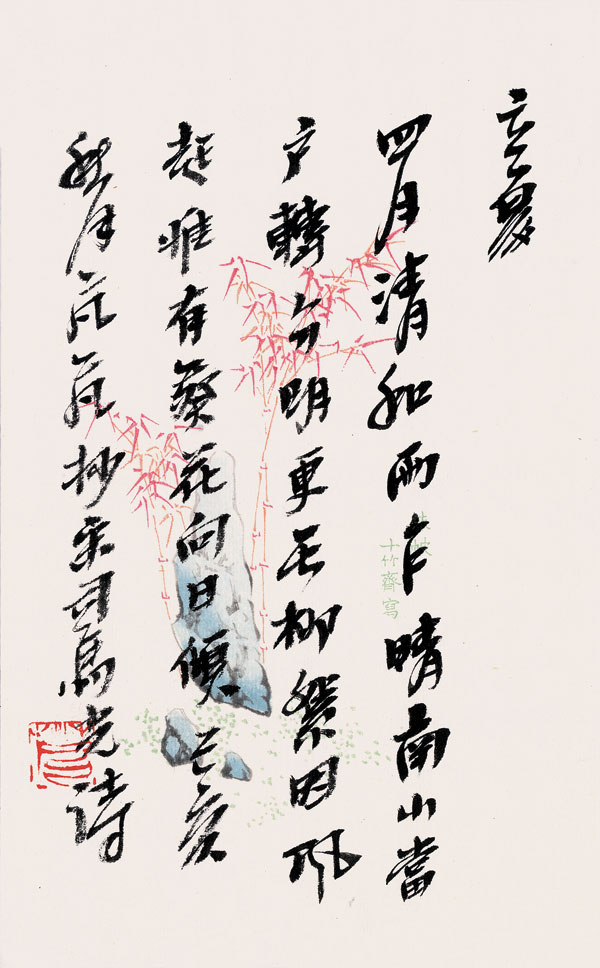 立夏
四月清和雨乍晴南山當
户轉分明更无柳絮因風
起惟有葵花向日傾己亥
秋月抄宋司馬光詩
十竹齋寫